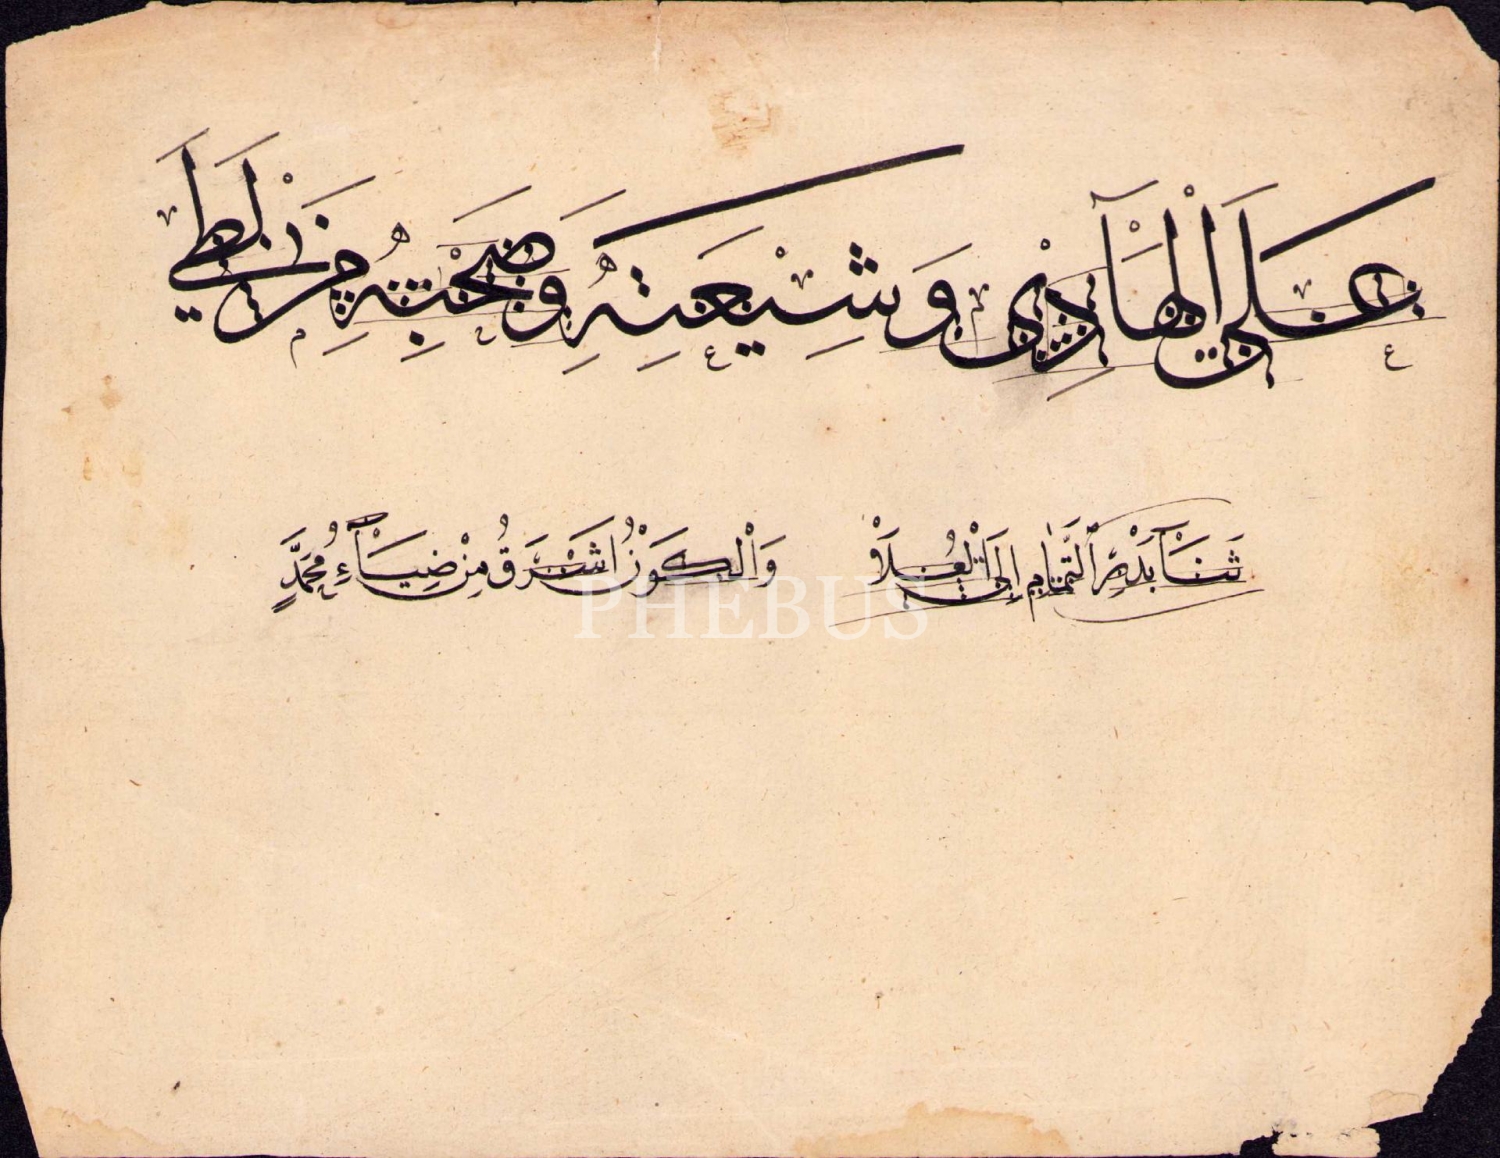 عَلَى الْهَادِي وَشِيْعَتِهِ وَصَحْبِهِ مِنْ لَظَي
بَدْرُ التَّمَامِ إِلَى الْعُلَا وَالْكَوْنُ اَشْرَقُ مِنْ ضِيَآءِ مُحَمَّدٍ
PHEBUS